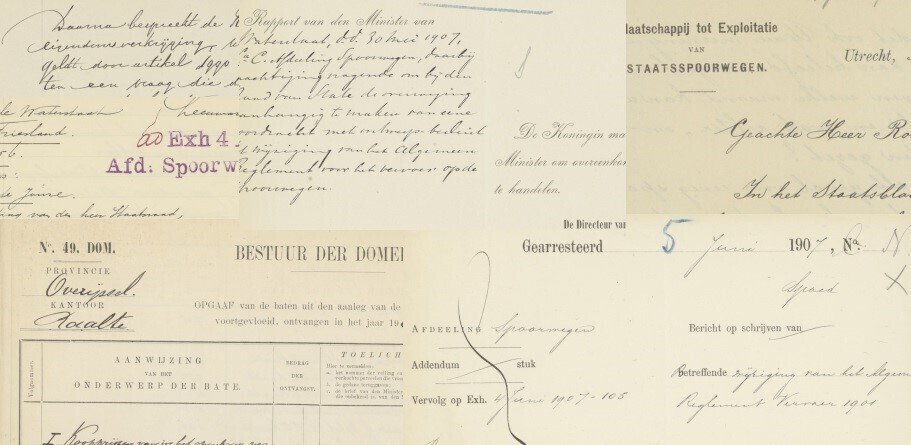 Daarna bespreekt de
eigendomsverkrijging,
geldt door artikel
ten een vraag die
de Waterstaat
Friesland.
6.
de Juure,
van den heer Staatsraad,
ad Exh 4
Afd: Spoorw
Rapport van den Minister van
Waterstaat, d.d. 30 Mei 1907,
Afdeeling Spoorwegen, daarbij
machtiging vragende om bij den
Raad van State de overweging
aanhangig te maken van eene
voordracht met ontwerp-besluit
wijziging van het Algemeen
Reglement voor het vervoer op de
spoorwegen.
De Koningin ma
Minister om overeenko
te handelen.
laatschappij tot Exploitatie
VAN
STAATSSPOORWEGEN.
Utrecht,
Geachte Heer Ro
In het Staatsbla
No. 49. DOM.
PROVINCIE
Overijsel.
KANTOOR
Raalte
BESTUUR DER DOMEI
OPGAAF van de baten uit den aanleg van de
voortgevloeid, ontvangen in het jaar 19
Volgnummer.
AANWIJZING
VAN HET
ONDERWERP DER BATE.
BEDRAG
DER
ONTVANGST.
TOELICH
Hier te vermelden:
I Kooprijzen van
De Directeur van
Gearresteerd 5 Juni 1907, No. C. N
Spoed X
AFDEELING Spoorwegen
Bericht op schrijven van
Addendum stuk
Betreffende wijziging van het Algem
Vervolg op Exh. 4 Juni 1907-105
Reglement Vervoer 1901